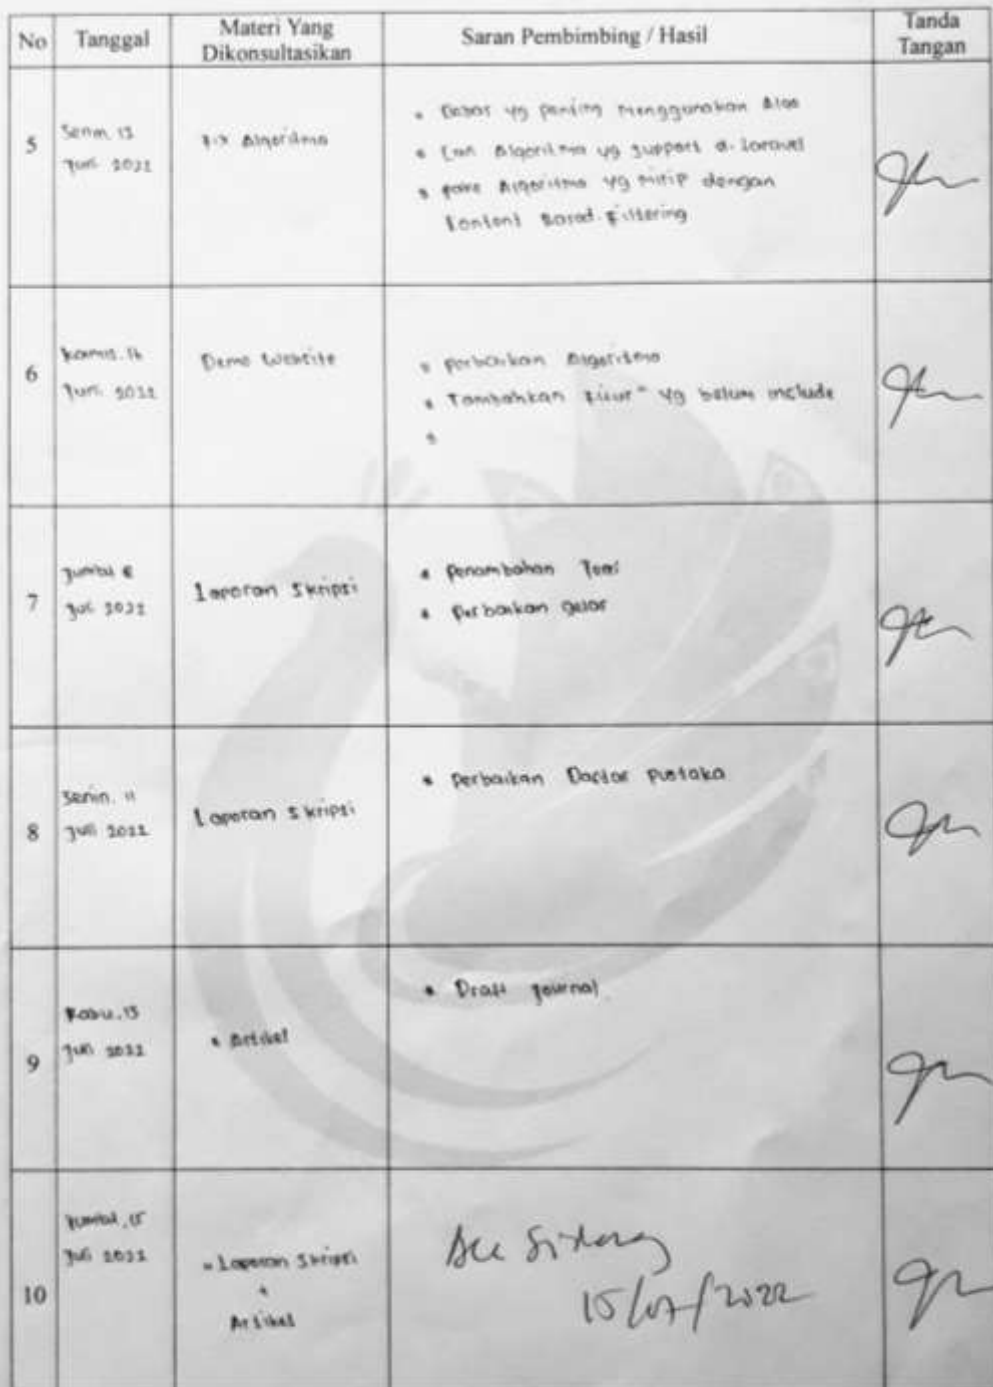 No
Tanggal
Materi Yang
Dikonsultasikan
Saran Pembimbing / Hasil
Tanda
Tangan
5
Senin, 13
Juni 2022
Fix Algoritma
• Bebas yg penting menggunakan Algo
• Cari Algoritma yg support di Laravel
• pake Algoritma yg mirip dengan
Content Based Filtering
6
Kamis, 16
Juni 2022
Demo Website
• perbaikan Algoritma
• Tambahkan fitur" yg belum include
•
7
Jumat 8
Juli 2022
Laporan Skripsi
• Penambahan
• Perbaikan gelar
8
Senin, 11
Juli 2022
Laporan Skripsi
• Perbaikan Daftar Pustaka
9
Rabu, 13
Juli 2022
• Artikel
• Draft Journal
10
Jumat, 15
Juli 2022
• Laporan Skripsi
+
Artikel
Acc Sidang
15/07/2022